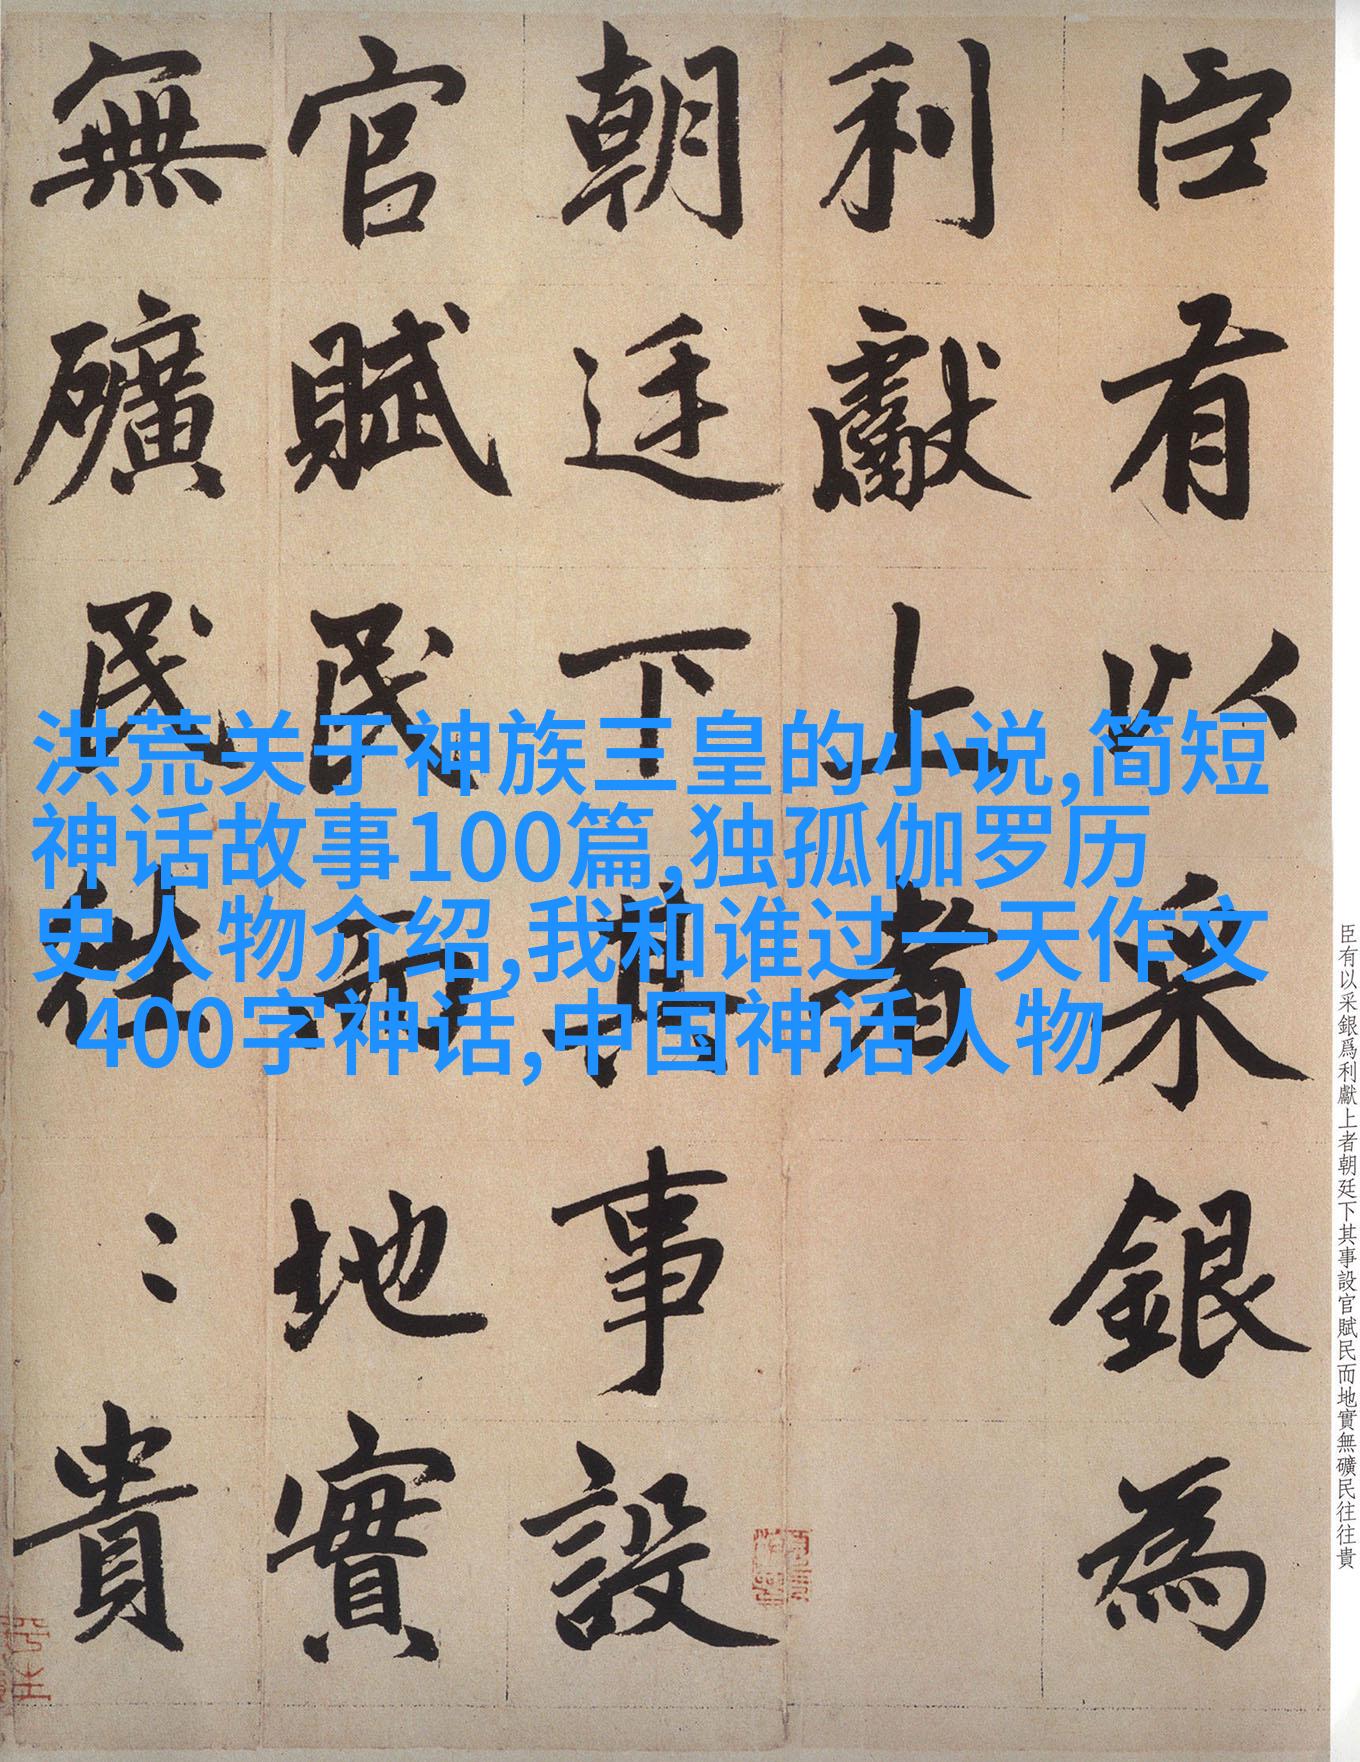 臣有以采銀為
利獻上者
朝廷下其事設
官賦民而地實
無礦民往〻貴
洪荒关于神族三皇的小说,简短
神话故事100篇,独孤伽罗历
史人物介绍,我和谁过一天作文
400字神话,中国神话人物
臣有以采銀爲利獻上者朝廷下其事設官賦民而地實無礦民往往貴